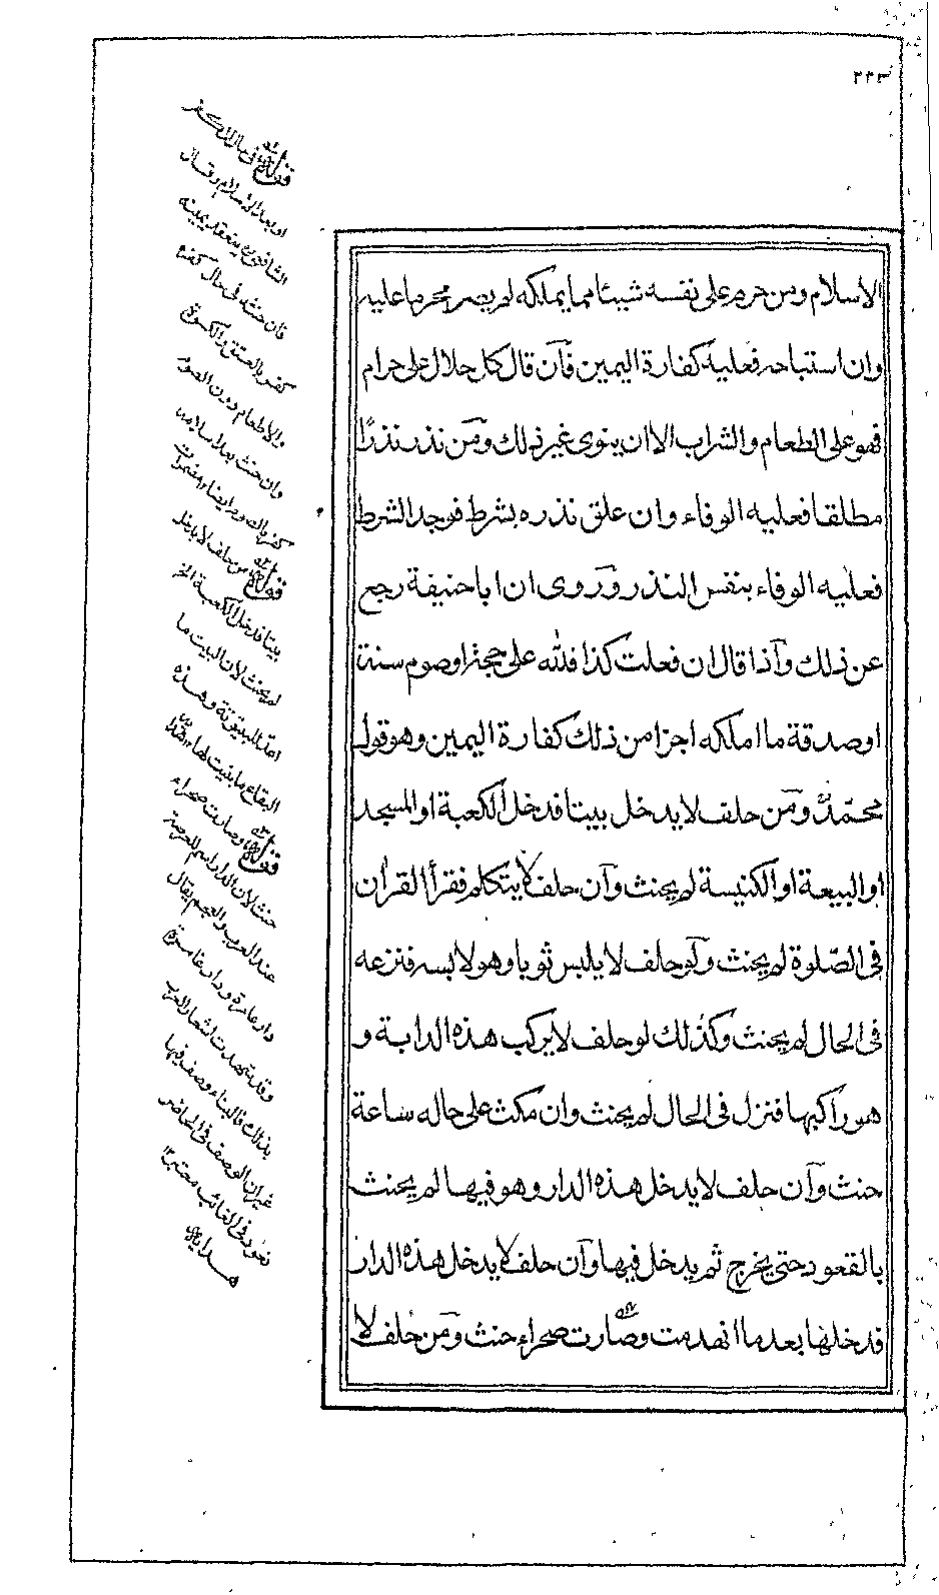 ٢٢٣
الاسلام ومن حرم على نفسه شيئا مما يملكه لم يصر محرما عليه
وان استباحه فعليه كفارة اليمين فان قال كل حلال على حرام
فهو على الطعام والشراب الا ان ينوى غير ذلك ومن نذر نذرًا
مطلقا فعليه الوفاء وان علق نذره بشرط فوجد الشرط
فعليه الوفاء بنفس النذر وروى ان ابا حنيفة رجع
عن ذلك واذا قال ان فعلت كذا فلله على حجة او صوم سنة
او صدقة ما املكه اجزا من ذلك كفارة اليمين وهو قول
محمّد ومن حلف لا يدخل بيتا فدخل الكعبة او المسجد
او البيعة او الكنيسة لم يحنث وان حلف لا يتكلم فقرأ القرآن
فى الصّلوة لم يحنث ولو حلف لا يلبس ثوبا وهو لابسه فنزعه
فى الحال لم يحنث وكذلك لو حلف لا يركب هذه الدابة و
هو راكبها فنزل فى الحال لم يحنث وان مكث على حاله ساعة
حنث وان حلف لا يدخل هذه الدار وهو فيها لم يحنث
بالقعود حتى يخرج ثم يدخل فيها وان حلف لا يدخل هذه الدار
فدخلها بعد ما انهدمت وصارت صحراء حنث ومن حلف لا
قوله فى حال الكفر
او بعد الاسلام وقال
الشافعى ره ينعقد يمينه
فان حنث فى حال كفره
كفر بالعتق والكسوة
والاطعام دون الصوم
وان حنث بعد اسلامه
كفر بالصوم ايضا
قوله ومن حلف لا يدخل
بيتا فدخل الكعبة الخ
لم يحنث لان البيت ما
اعد للبيتوتة وهذه
البقاع ما بنيت لها
قوله وصارت صحراء
حنث لان الدار اسم للعرصة
عند العرب والعجم يقال
دار عامرة ودار غامرة
وقد شهدت اشعار العرب
بذلك فالبناء وصف فيها
غير ان الوصف فى الحاضر
لغو وفى الغائب معتبر ١٢
هدايه